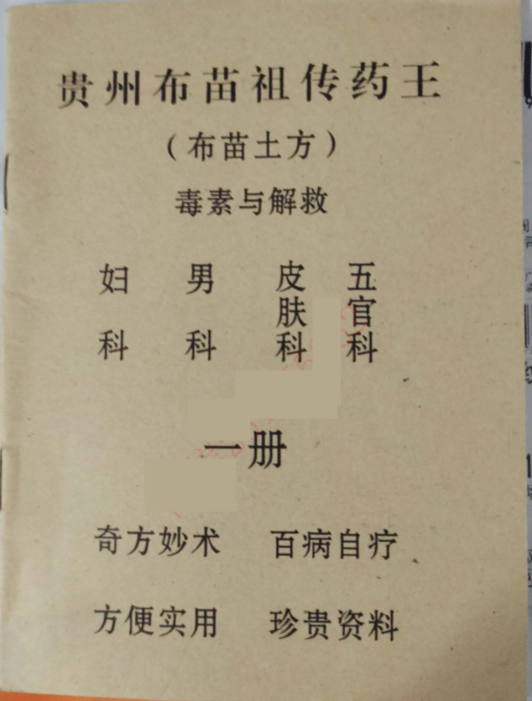 贵州布苗祖传药王
（布苗土方）
毒素与解救
妇科 男科 皮肤科 五官科
一册
奇方妙术 百病自疗
方便实用 珍贵资料